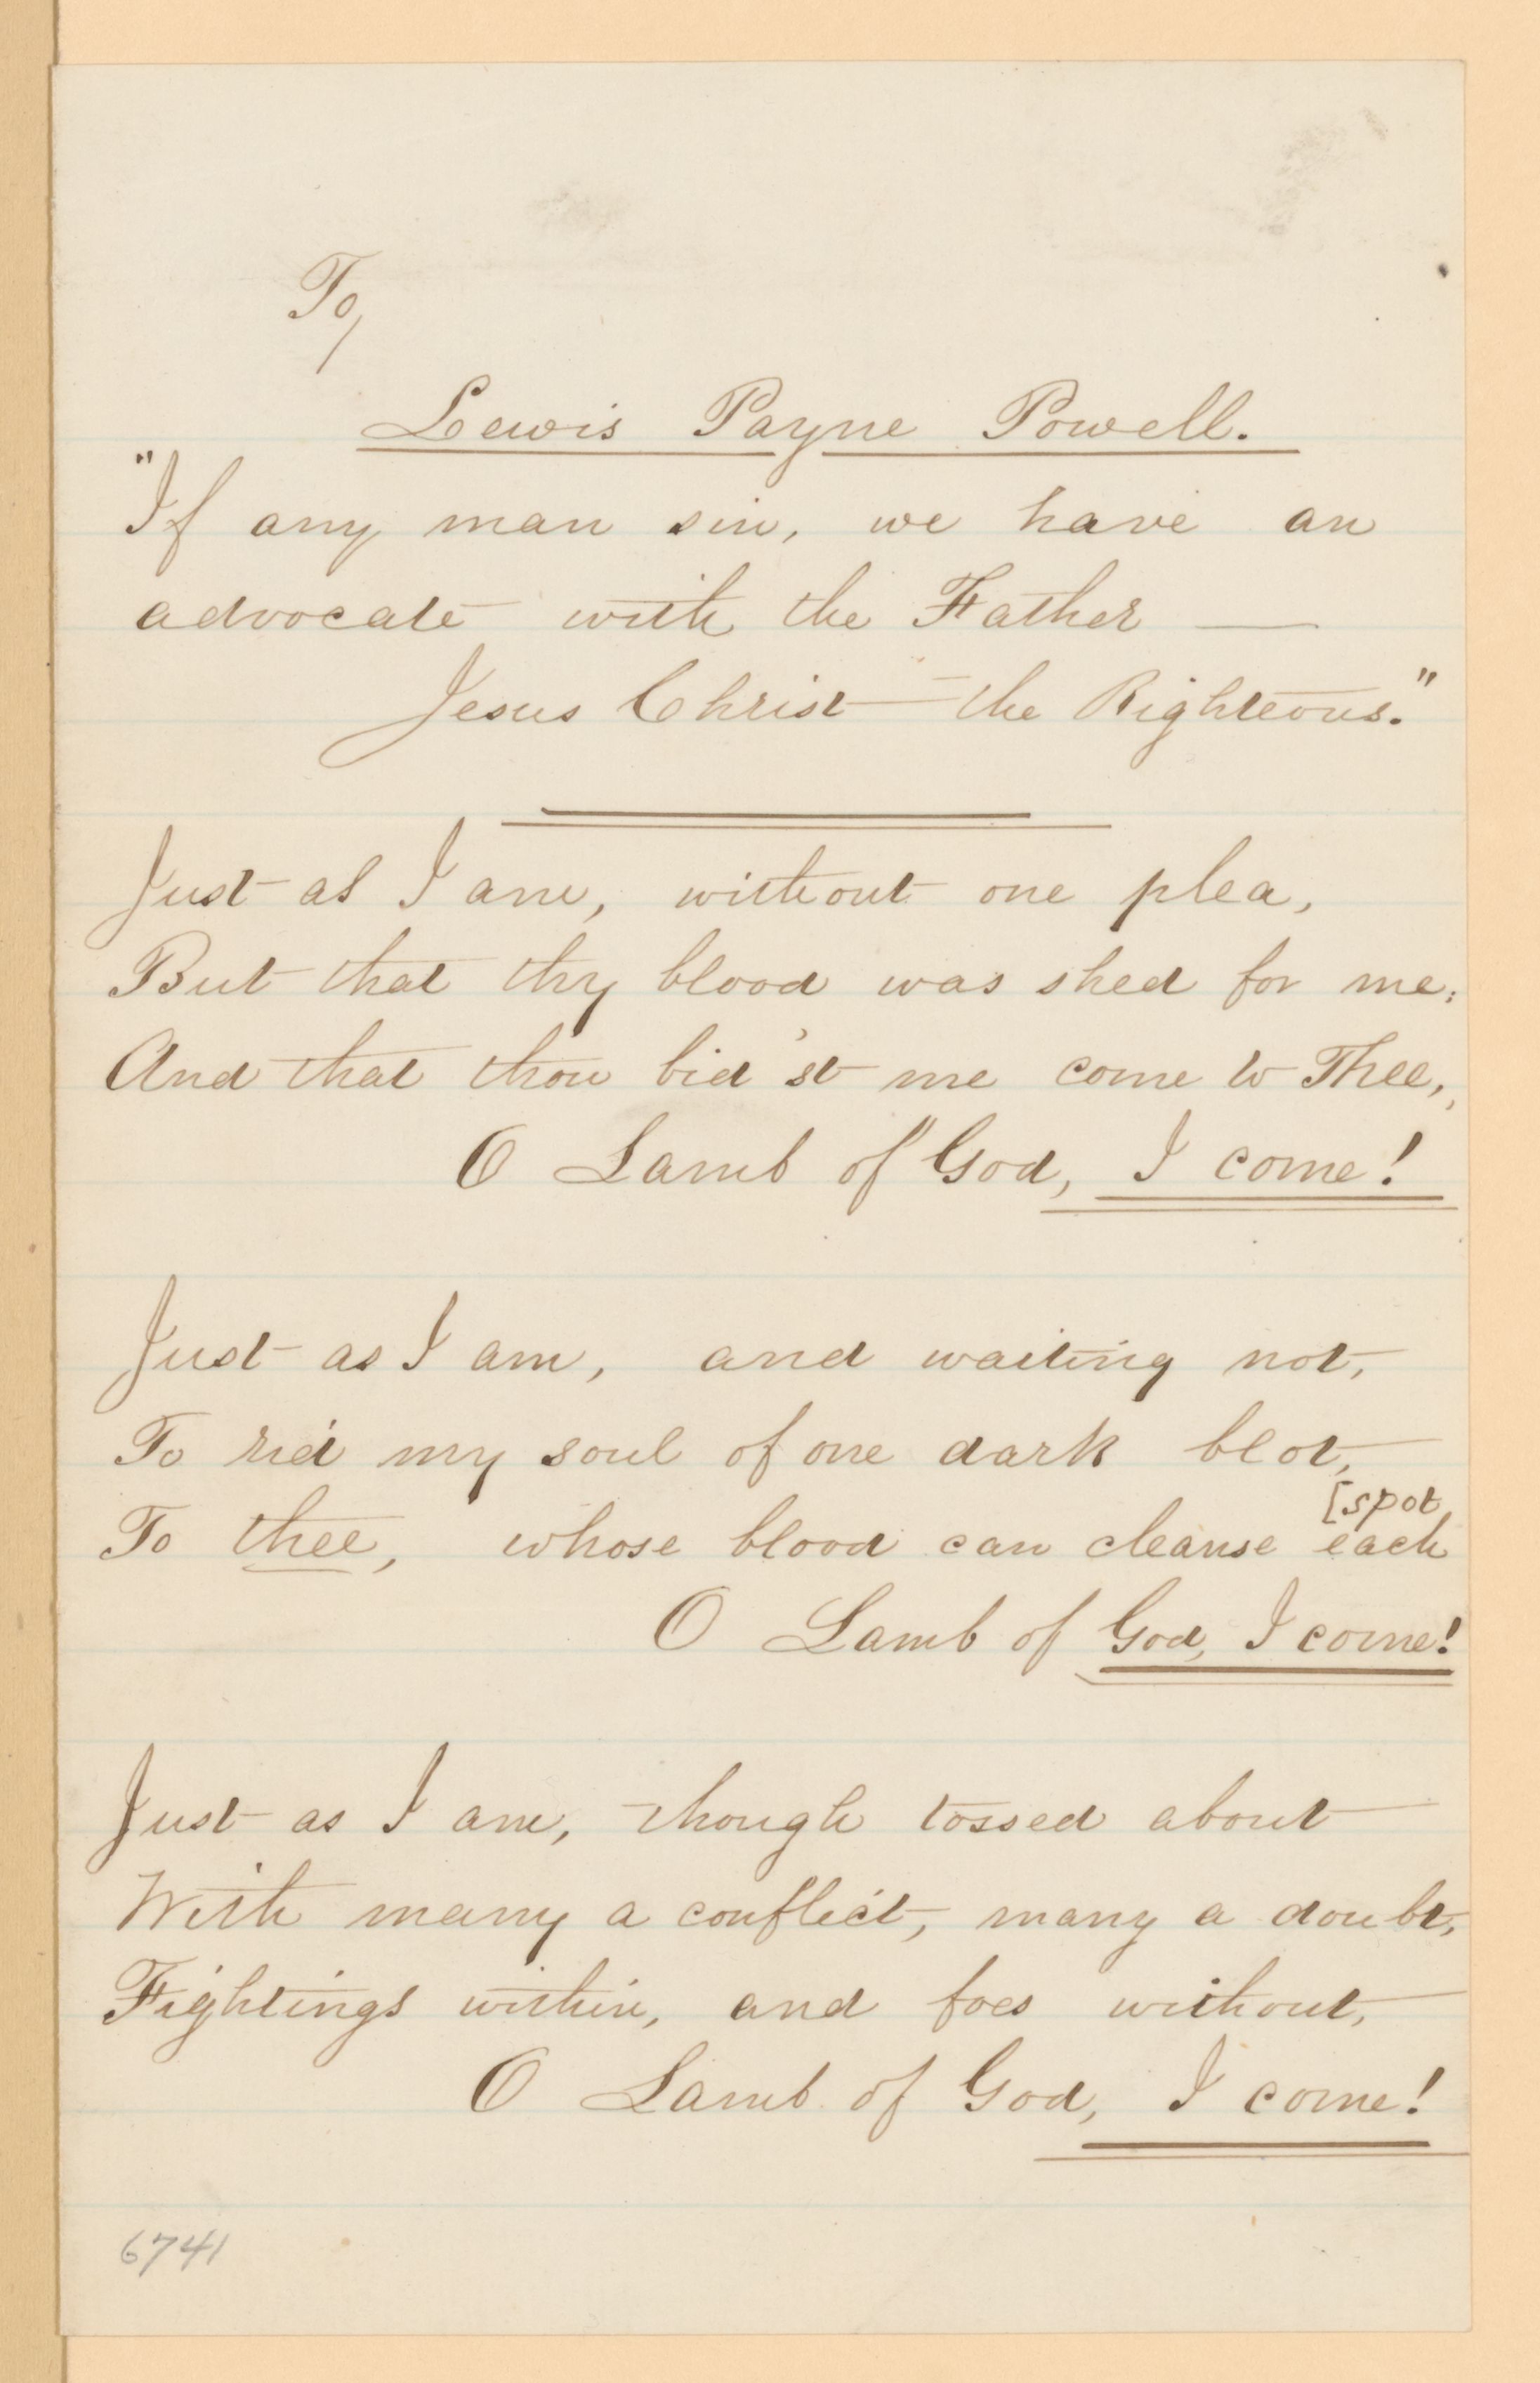 To,
Lewis Payne Powell.
"If any man sin, we have an
advocate with the Father —
Jesus Christ — the Righteous."
Just as I am, without one plea,
But that thy blood was shed for me;
And that thou bid'st me come to Thee,
O Lamb of God, I come!
Just as I am, and waiting not,
To rid my soul of one dark blot,
[spot
To thee, whose blood can cleanse each
O Lamb of God, I come!
Just as I am, though tossed about
With many a conflict, many a doubt,
Fightings within, and foes without,
O Lamb of God, I come!
6741